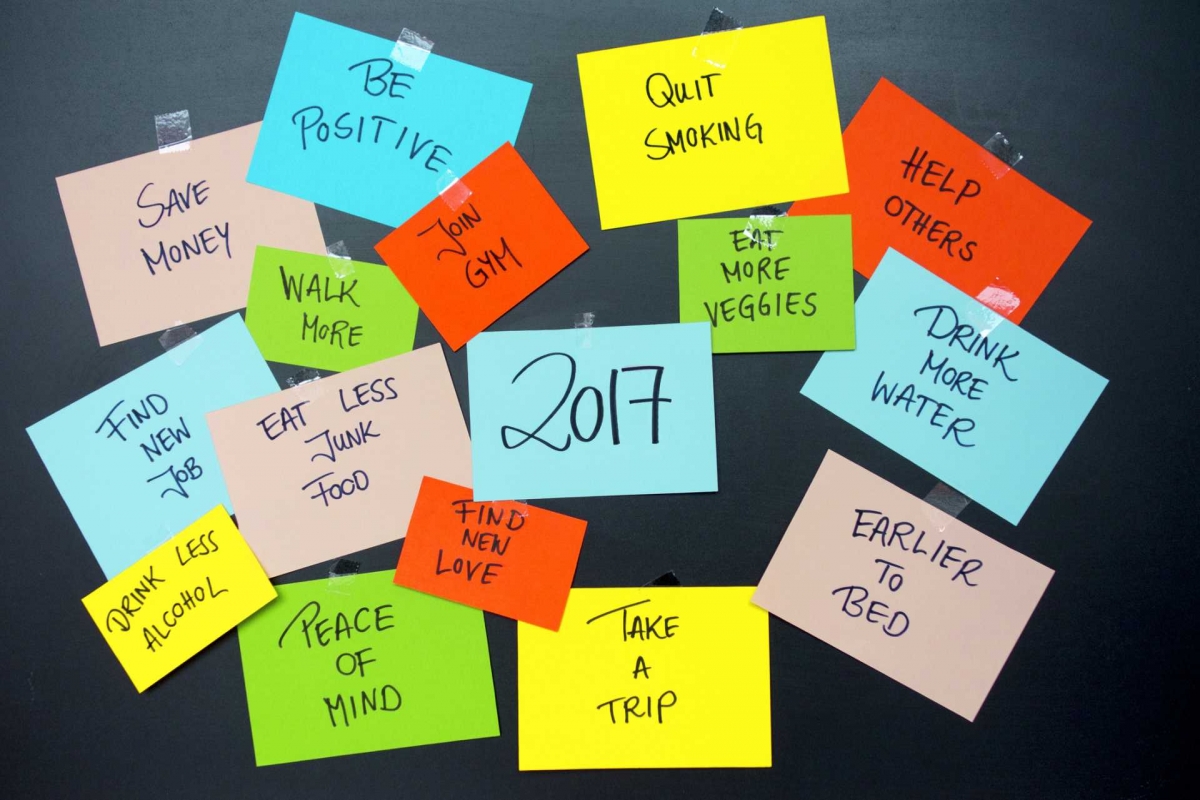 BE
POSITIVE
QUIT
SMOKING
SAVE
MONEY
JOIN
GYM
HELP
OTHERS
WALK
MORE
EAT
MORE
VEGGIES
DRINK
MORE
WATER
FIND
NEW
JOB
EAT LESS
JUNK
FOOD
2017
FIND
NEW
LOVE
EARLIER
TO
BED
DRINK LESS
ALCOHOL
PEACE
OF
MIND
TAKE
A
TRIP